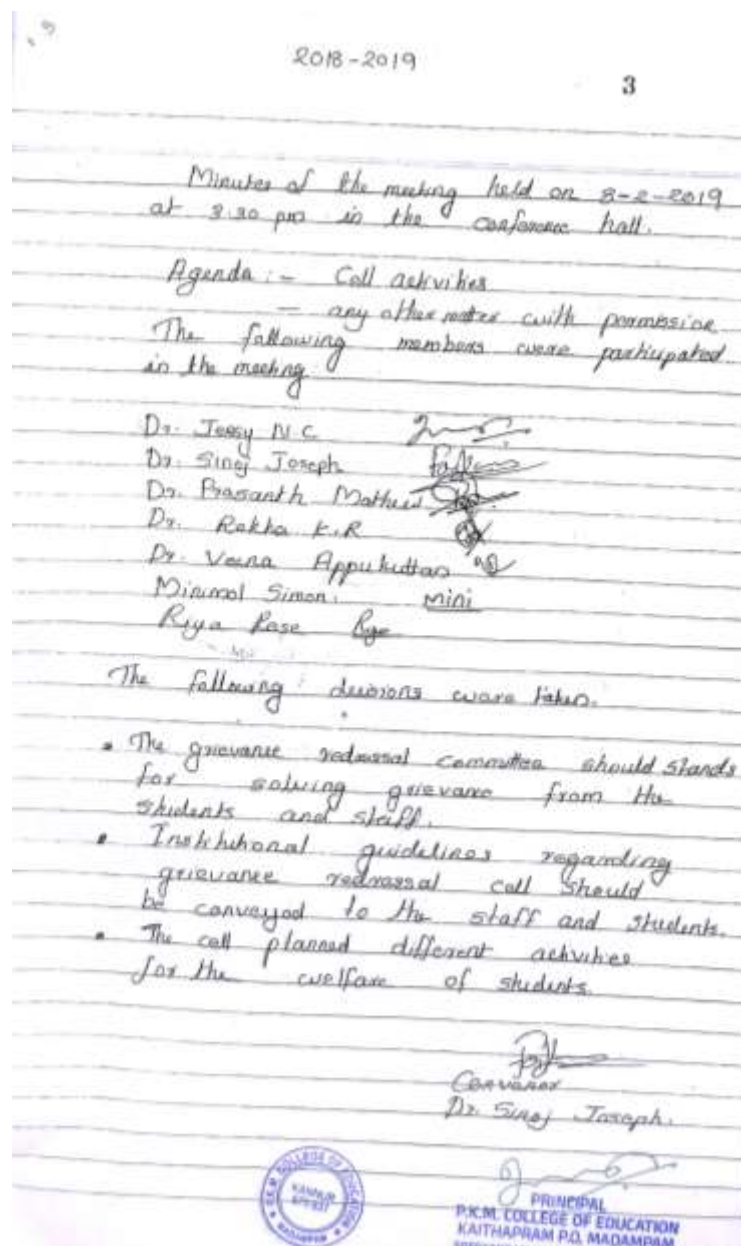 2018-2019
3
Minutes of the meeting held on 8-2-2019
at 3.30 pm in the conference hall.
Agenda :- Cell activities
- any other matter with permission
The following members were participated
in the meeting
Dr. Jessy N.C
Dr. Sinoj Joseph
Dr. Prasanth Mathew
Dr. Rekha K.R
Dr. Veena Appukuttan
Minimol Simon. Mini
Riya Rose
The following decisions were taken.
• The grievance redressal committee should stands
for solving grievance from the
students and staff.
• Institutional guidelines regarding
grievance redressal cell should
be conveyed to the staff and students.
• The cell planned different activities
for the welfare of students.
Convenor
Dr. Sinoj Joseph.
P.K.M. COLLEGE OF EDUCATION
KANNUR
MADAMPAM
PRINCIPAL
P.K.M. COLLEGE OF EDUCATION
KAITHAPRAM P.O. MADAMPAM